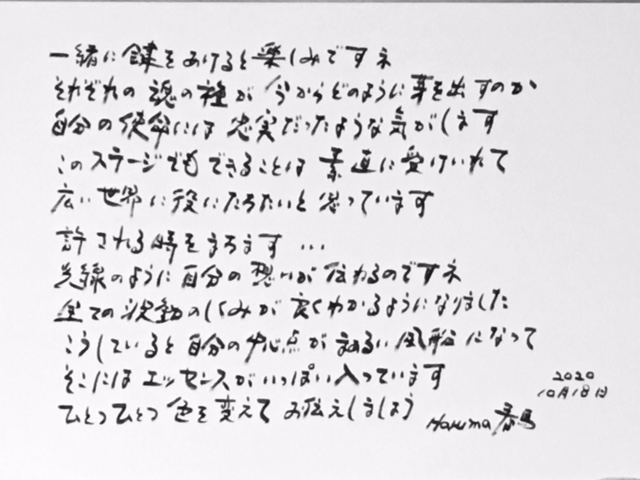 一緒に鍵をあけると楽しみですネ
それぞれの魂の種が 今からどのように芽を出すのか
自分の使命には忠実だったような気がします
このステージでもできることは 素直に受けいれて
広い世界に役にたちたいと思っています
許される時をまちます …
光線のように自分の想いが伝わるのですネ
全ての波動のしくみが良くわかるようになりました
こうしていると自分の中心点がまあるい風船になって
そこにはエッセンスがいっぱい入っています
ひとつひとつ色を変えて お伝えしましょう
Haruma 春馬
2020
10月18日